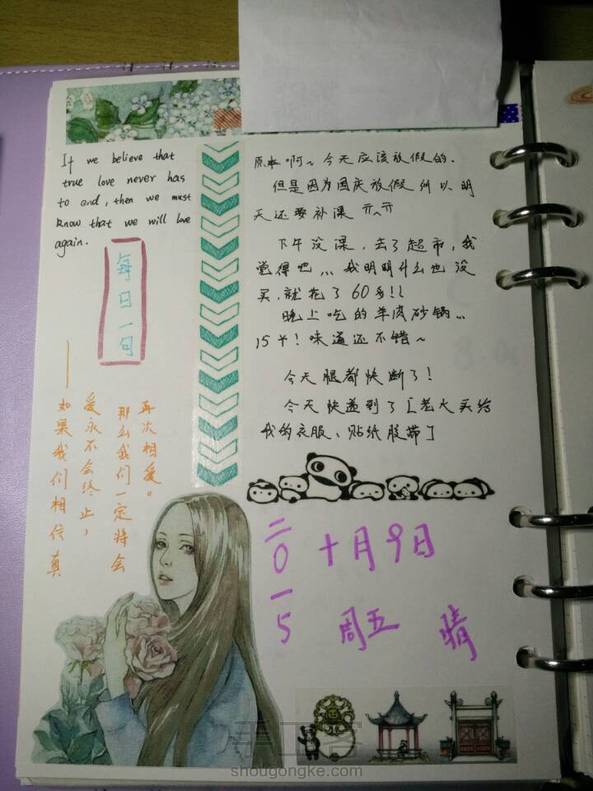 If we believe that
true love never has
to end, then we must
know that we will love
again.
每日一句
——如果我们相信真
爱永不会终止，
那么我们一定将会
再次相爱。
原本啊~今天应该放假的.
但是因为国庆放假所以明
天还要补课
下午没课，去了超市，我
觉得吧,,,我明明什么也没
买，就花了60多!!
晚上吃的羊肉砂锅...
15￥!味道还不错~
今天腿都快断了!
今天快递到了[老大买给
我的衣服、贴纸胶带]
二0一5
十月9日
周五 晴
手工客
shougongke.com